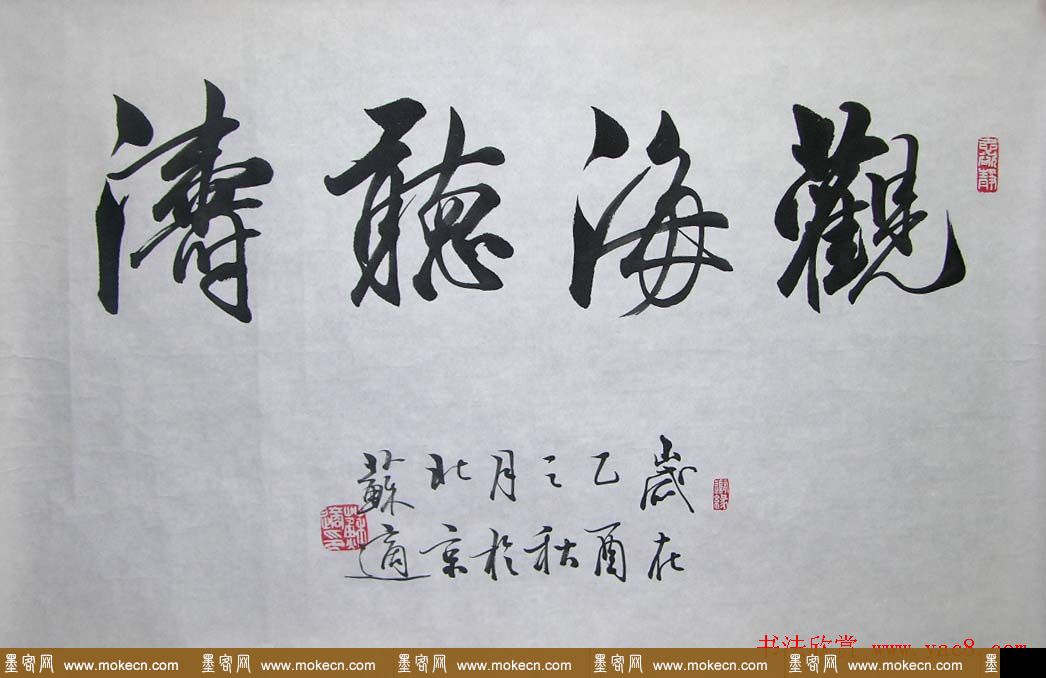 觀海聽濤
歲在
乙酉
之秋
月於
北京
蘇適
书法欣赏 www.yac8.com
墨客网 www.mokecn.com 墨客网 www.mokecn.com 墨客网 www.mokecn.com 墨客网 www.mokecn.com 墨客网 www.mokecn.com 墨